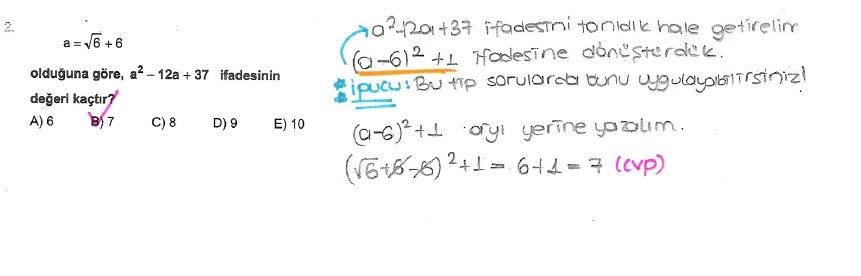 2.
a = √6 + 6
olduğuna göre, a² – 12a + 37 ifadesinin
değeri kaçtır?
A) 6 B) 7 C) 8 D) 9 E) 10
a²-12a+37 ifadesini tanıdık hale getirelim
(a-6)² +1 ifadesine dönüştürdük.
* ipucu: Bu tip sorularda bunu uygulayabilirsiniz!
(a-6)²+1 a'yı yerine yazalım.
(√6+6-6)²+1 = 6+1 = 7 (cvp)